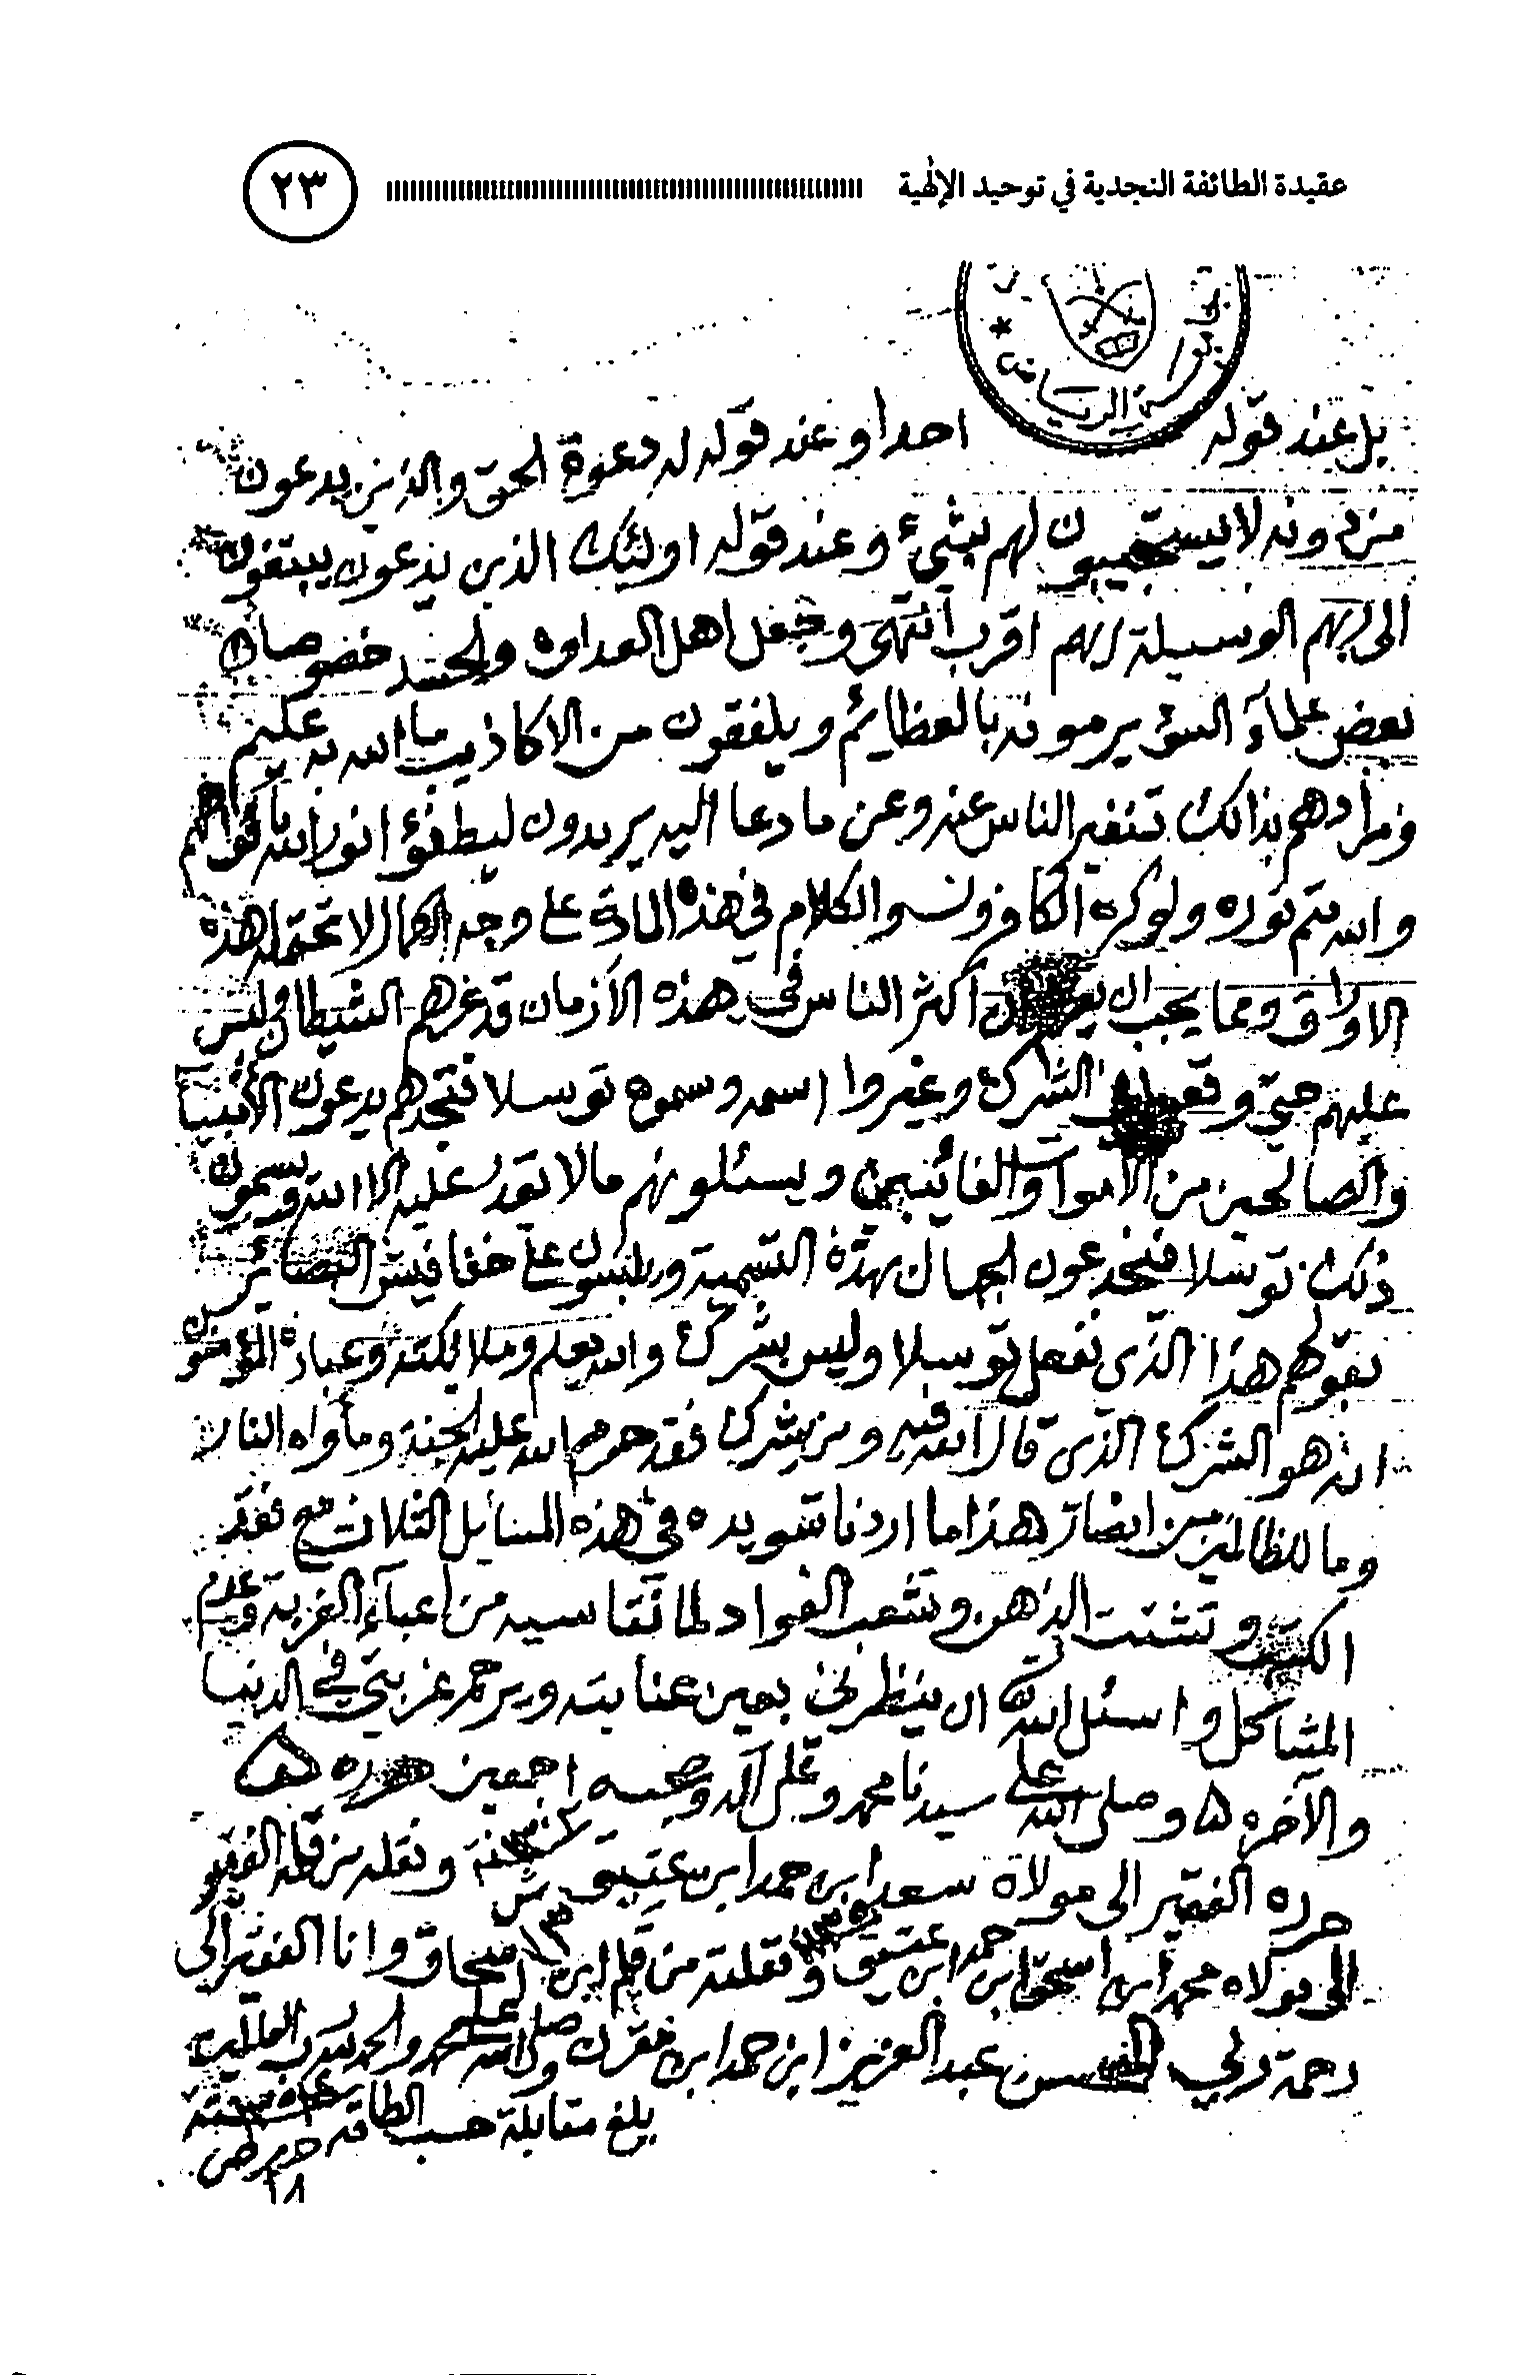 عقيدة الطائفة النجدية في توحيد الإلهية
٢٣
بل عند قوله احدا وعند قوله له دعوة الحق والذين يدعون
من دونه لا يستجيبون لهم بشيء وعند قوله اولئك الذين يدعون يبتغون
الى ربهم الوسيلة ايهم اقرب انتهى وجعل اهل العداوه والحسد خصوصا
بعض علماء السؤ يرمونه بالعظايم ويلفقون من الاكاذيب ما الله به عليم
ومرادهم بذالك تنفير الناس عنه وعن ما دعا اليه يريدون ليطفؤا نور الله بافواههم
والله متم نوره ولو كره الكافرون والكلام في هذه المادة على وجه الكمال لا تحتمله هذه
الاوراق ومما يجب ان اكثر الناس في هذه الأزمان قد غرهم الشيطان ولبس
عليهم حتى وقعوا في الشرك وغيروا اسمه وسموه توسلا فتجدهم يدعون الأنبيا
والصالحين من الاموات والغائيبين ويسئلونهم مالا يقدر عليه الا الله ويسمون
ذلك توسلا فيخدعون الجهال بهذه التسمية ويلبسون على خفافيش البصائر
بقولهم هذا الذي نفعل توسلا وليس بشرك والله يعلم وملائكته وعباده المؤمنون
انه هو الشرك الذي قال الله فيه ومن يشرك فقد حرم الله عليه الجنة ومأواه النار
وما للظالمين من انصار هذا ما اردنا تسويده في هذه المسايل الثلاث مع فقد
الكتب وتشتت الذهن وتشعب الفواد لما نقاسيه من اعباء الغربة وعدم
المشاكل واسئل الله ان ينظرني بعين عنايته ويرحم غربتي في الدنيا
والآخره ه وصلى الله على سيدنا محمد وعلى آله وصحبه اجمعين
حرره الفقير الى مولاه سعد ابن حمد ابن عتيق سنة ونقله من قلمه الفقير
الى مولاه محمد ابن اسحق ابن حمد ابن عتيق ونقلته من قلم ابن اسحاق وانا الفقير الى
رحمة ربي عبد العزيز ابن حمد ابن مقرن وصلى الله على محمد والحمد لله رب العالمين
بلغ مقابلة حسب الطاقه
١٨